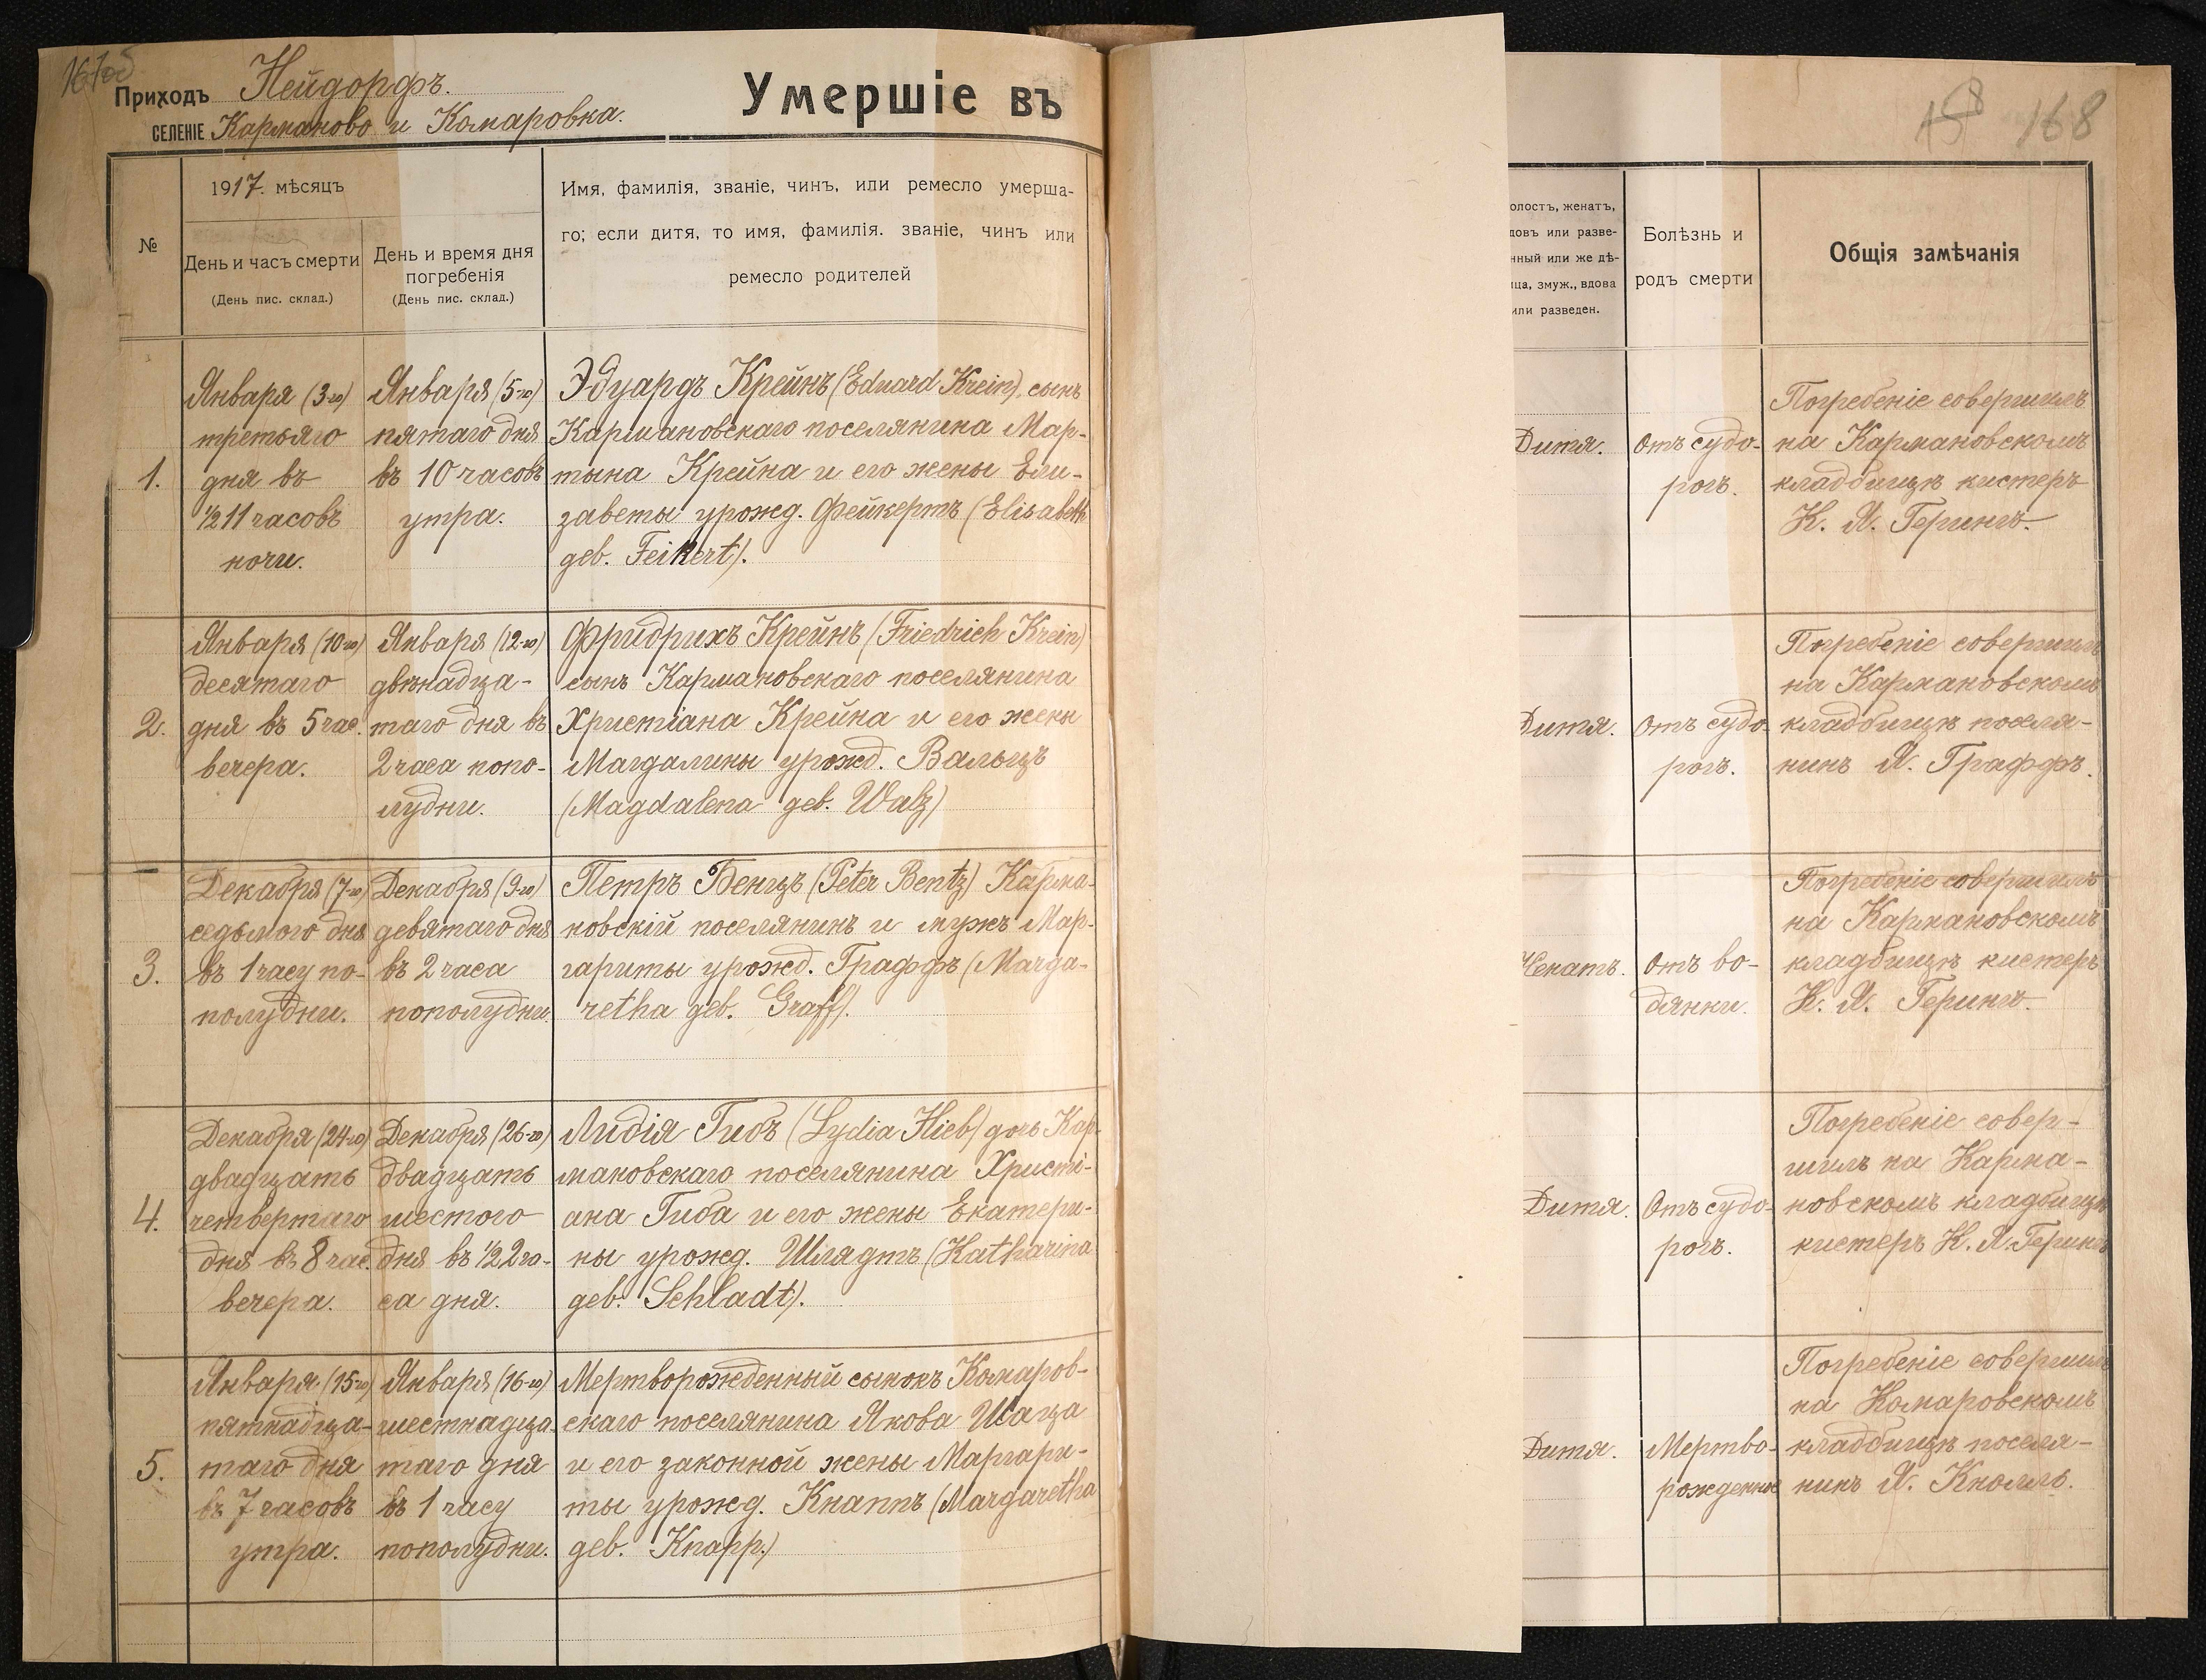 167об
Приходъ Нейдорфъ.
СЕЛЕНІЕ Карманово и Комаровка.
Умершіе въ
№
1917. мѣсяцъ
День и часъ смерти
(День пис. склад.)
День и время дня
погребенія
(День пис. склад.)
Имя, фамилія, званіе, чинъ, или ремесло умерша-
го; если дитя, то имя, фамилія. званіе, чинъ или
ремесло родителей
1.
Января (3-го)
третьяго
дня въ
½11 часовъ
ночи.
Января (5-го)
пятаго дня
въ 10 часовъ
утра.
Эдуардъ Крейнъ (Eduard Krein), сынъ
Кармановскаго поселянина Мар-
тына Крейна и его жены Ели-
заветы урожд. Фейкертъ (Elisabeth
geb. Feikert).
2.
Января (10-го)
десятаго
дня въ 5 час.
вечера.
Января (12-го)
двѣнадца-
таго дня въ
2 часа попо-
лудни.
Фридрихъ Крейнъ (Friedrich Krein)
сынъ Кармановскаго поселянина
Христіана Крейна и его жены
Магдалины урожд. Вальцъ
(Magdalena geb. Walz)
3.
Декабря (7-го)
седьмого дня
въ 1 часу по-
полудни.
Декабря (9-го)
девятаго дня
въ 2 часа
пополудни.
Петръ Бенцъ (Peter Bentz) Карма-
новскій поселянинъ и мужъ Мар-
гариты урожд. Граффъ (Marga-
retha geb. Graff).
4.
Декабря (24-го)
двадцать
четвертаго
дня въ 8 час.
вечера.
Декабря (26-го)
двадцать
шестого
дня въ ½2 ча-
са дня.
Лидія Гибъ (Lydia Hieb) дочь Кар-
мановскаго поселянина Христі-
ана Гиба и его жены Екатери-
ны урожд. Шлядтъ (Katharina
geb. Schladt).
5.
Января (15-го)
пятнадца-
таго дня
въ 7 часовъ
утра.
Января (16-го)
шестнадца-
таго дня
въ 1 часу
пополудни.
Мертворожденный сынокъ Комаров-
скаго поселянина Якова Шаца
и его законной жены Маргари-
ты урожд. Кнаппъ (Margaretha
geb. Knapp.)
158 168
олостъ, женатъ,
довъ или разве-
нный или же дѣ-
ица, змуж., вдова
или разведен.
Болѣзнь и
родъ смерти
Общія замѣчанія
Дитя.
Отъ судо-
рогъ.
Погребеніе совершилъ
на Кармановскомъ
кладбищѣ кистеръ
К. Я. Герингъ.
Дитя.
Отъ судо-
рогъ.
Погребеніе совершилъ
на Кармановскомъ
кладбищѣ поселя-
нинъ Я. Граффъ.
Женатъ.
Отъ во-
дянки.
Погребеніе совершилъ
на Кармановскомъ
кладбищѣ кистеръ
К. Я. Герингъ.
Дитя.
Отъ судо-
рогъ.
Погребеніе совер-
шилъ на Карма-
новскомъ кладбищѣ
кистеръ К. Я. Герингъ
Дитя.
Мертво-
рожденное
Погребеніе совершилъ
на Комаровскомъ
кладбищѣ поселя-
нинъ Я. Кнолль.